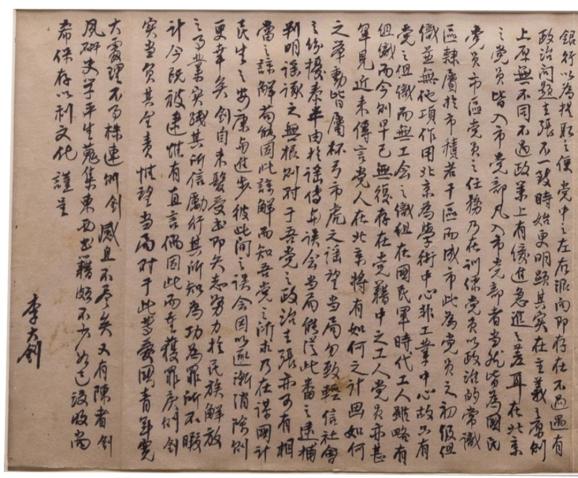 銀行以為撥取之便黨中之左右派向即存在不過遇有
政治問題主張不一致時始更明顯其實在主義之原則
上原無不同不過政策上有緩進急進之差耳在北京
之黨員皆入市黨部凡入市黨部者當然皆為國民
黨員市區黨員之任務乃在訓練黨員以政治的常識
區隸屬於市積若干區而成市此為黨員之初級組
織並無他項作用北京為學術中心非工業中心故只有
黨之組織而無工會之組織在國民軍時代工人雖略有
組織而今則早已無復存在黨籍中之工人黨員亦甚
罕見近來傳言黨人在北京將有如何之計畫如何
之舉動皆屬杯弓市虎之謠望當局勿致輕信社會
之紛擾泰半由於謠傳與誤會當局能從此番之逮捕
判明謠諑之無根則對于吾黨之政治主張亦可有相
當之諒解苟能因此諒解而知吾黨之所求乃在謀國計
民生之安康與進步彼此間之誤會因以逐漸消除則
更幸矣 釗自束髮受書即矢志努力於民族解放
之事業實踐其所信勵行其所知為功為罪所不暇
計今既被逮惟有直言倘因此而重獲罪戾則釗
實當負其全責惟望當局對于此等愛國青年寬
大處理不事株連則釗感且不盡矣又有陳者釗
夙研史學平生蒐集東西書籍頗不少如已沒收尚
希保存以利文化 謹呈
李大釗